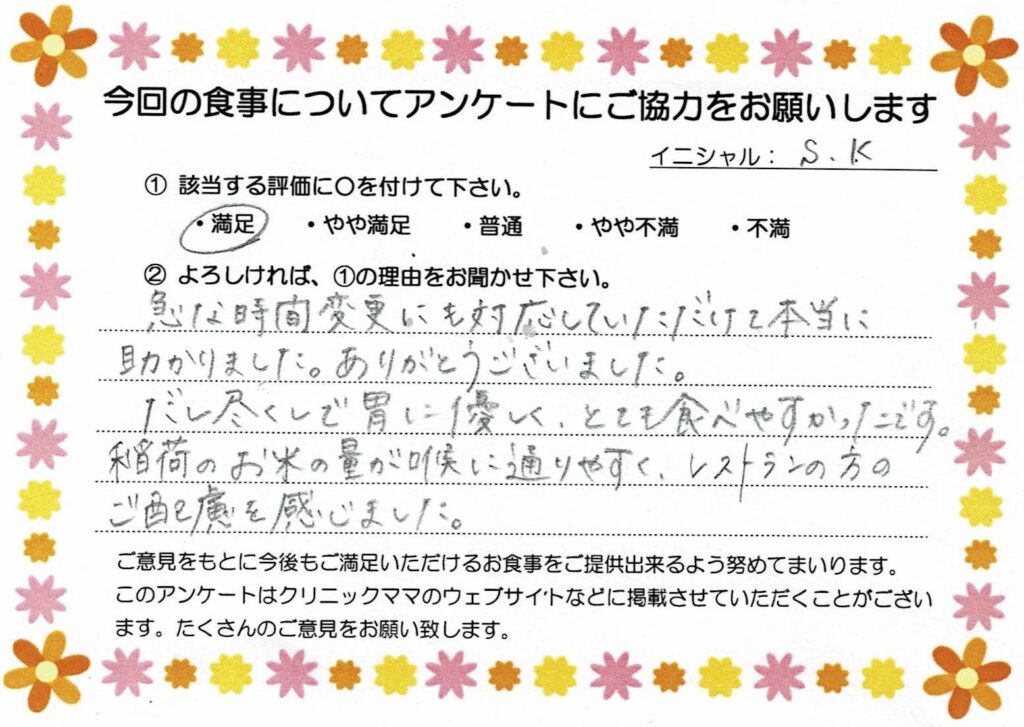 今回の食事についてアンケートにご協力をお願いします
イニシャル： S.K
① 該当する評価に〇を付けて下さい。
・満足 ・やや満足 ・普通 ・やや不満 ・不満
② よろしければ、①の理由をお聞かせ下さい。
急な時間変更にも対応していただけて本当に
助かりました。ありがとうございました。
だし尽くしで胃に優しく、とても食べやすかったです。
稲荷のお米の量が喉に通りやすく、レストランの方の
ご配慮を感じました。
ご意見をもとに今後もご満足いただけるお食事をご提供出来るよう努めてまいります。
このアンケートはクリニックママのウェブサイトなどに掲載させていただくことがござい
ます。たくさんのご意見をお願い致します。